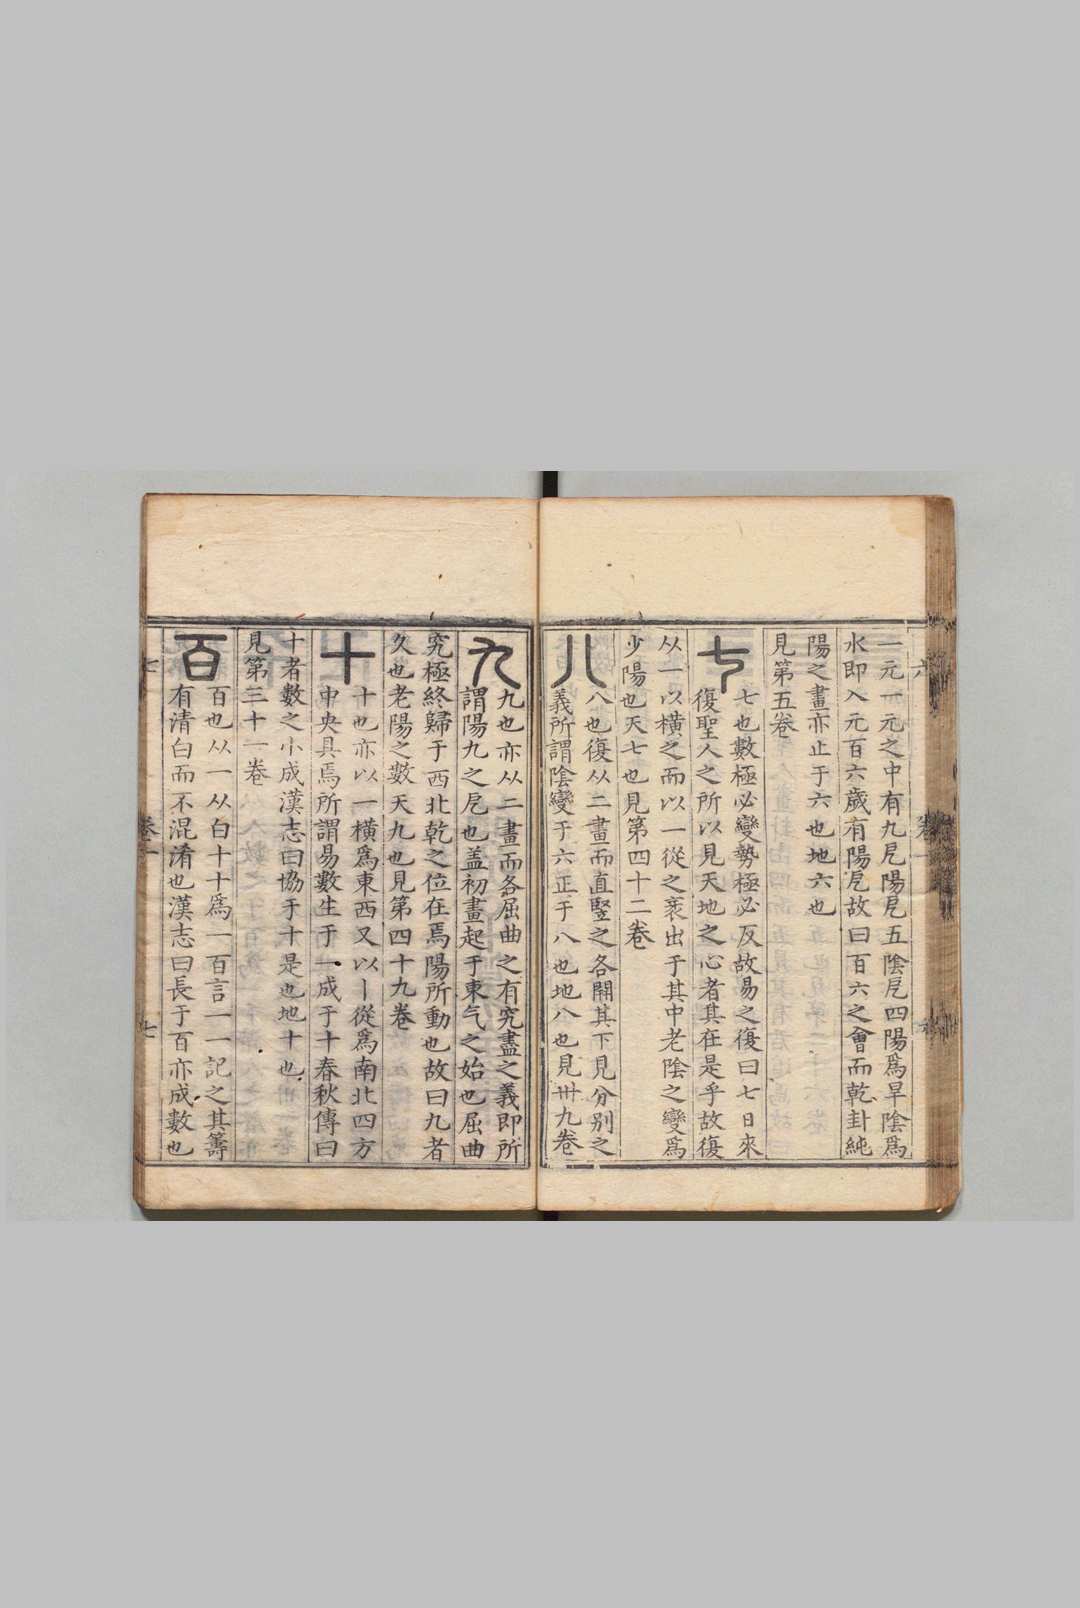 一元一元之中有九戹陽戹五陰戹四陽爲旱陰爲
水即入元百六歲有陽戹故曰百六之會而乾卦純
陽之畫亦止于六也地六也
見第五卷
七
七也數極必變勢極必反故易之復曰七日來
復聖人之所以見天地之心者其在是乎故復
从一以橫之而以一從之衺出于其中老陰之變爲
少陽也天七也見第四十二卷
八
八也復从二畫而直豎之各開其下見分別之
義所謂陰變于六正于八也地八也見卅九卷
九
九也亦从二畫而各屈曲之有究盡之義即所
謂陽九之戹也盖初畫起于東气之始也屈曲
究極終歸于西北乾之位在焉陽所動也故曰九者
久也老陽之數天九也見第四十九卷
十
十也亦以一橫爲東西又以丨從爲南北四方
中央具焉所謂易數生于一成于十春秋傳曰
十者數之小成漢志曰協于十是也地十也
見第三十一卷
百
百也从一从白十十爲一百言一一記之其籌
有清白而不混淆也漢志曰長于百亦成數也